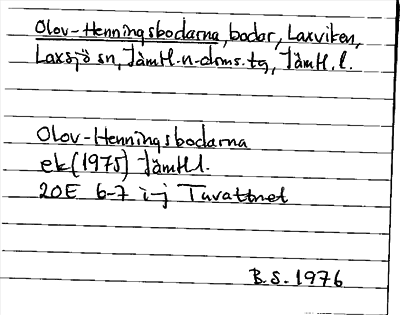 Olov-Henningsbodarna, bodar, Laxviken,
Laxsjö sn, Jämtl. n. doms. tg, Jämtl. l.
Olov-Henningsbodarna
ek (1975) Jämtl l.
20E 6-7 i-j Tuvattnet
B.S. 1976